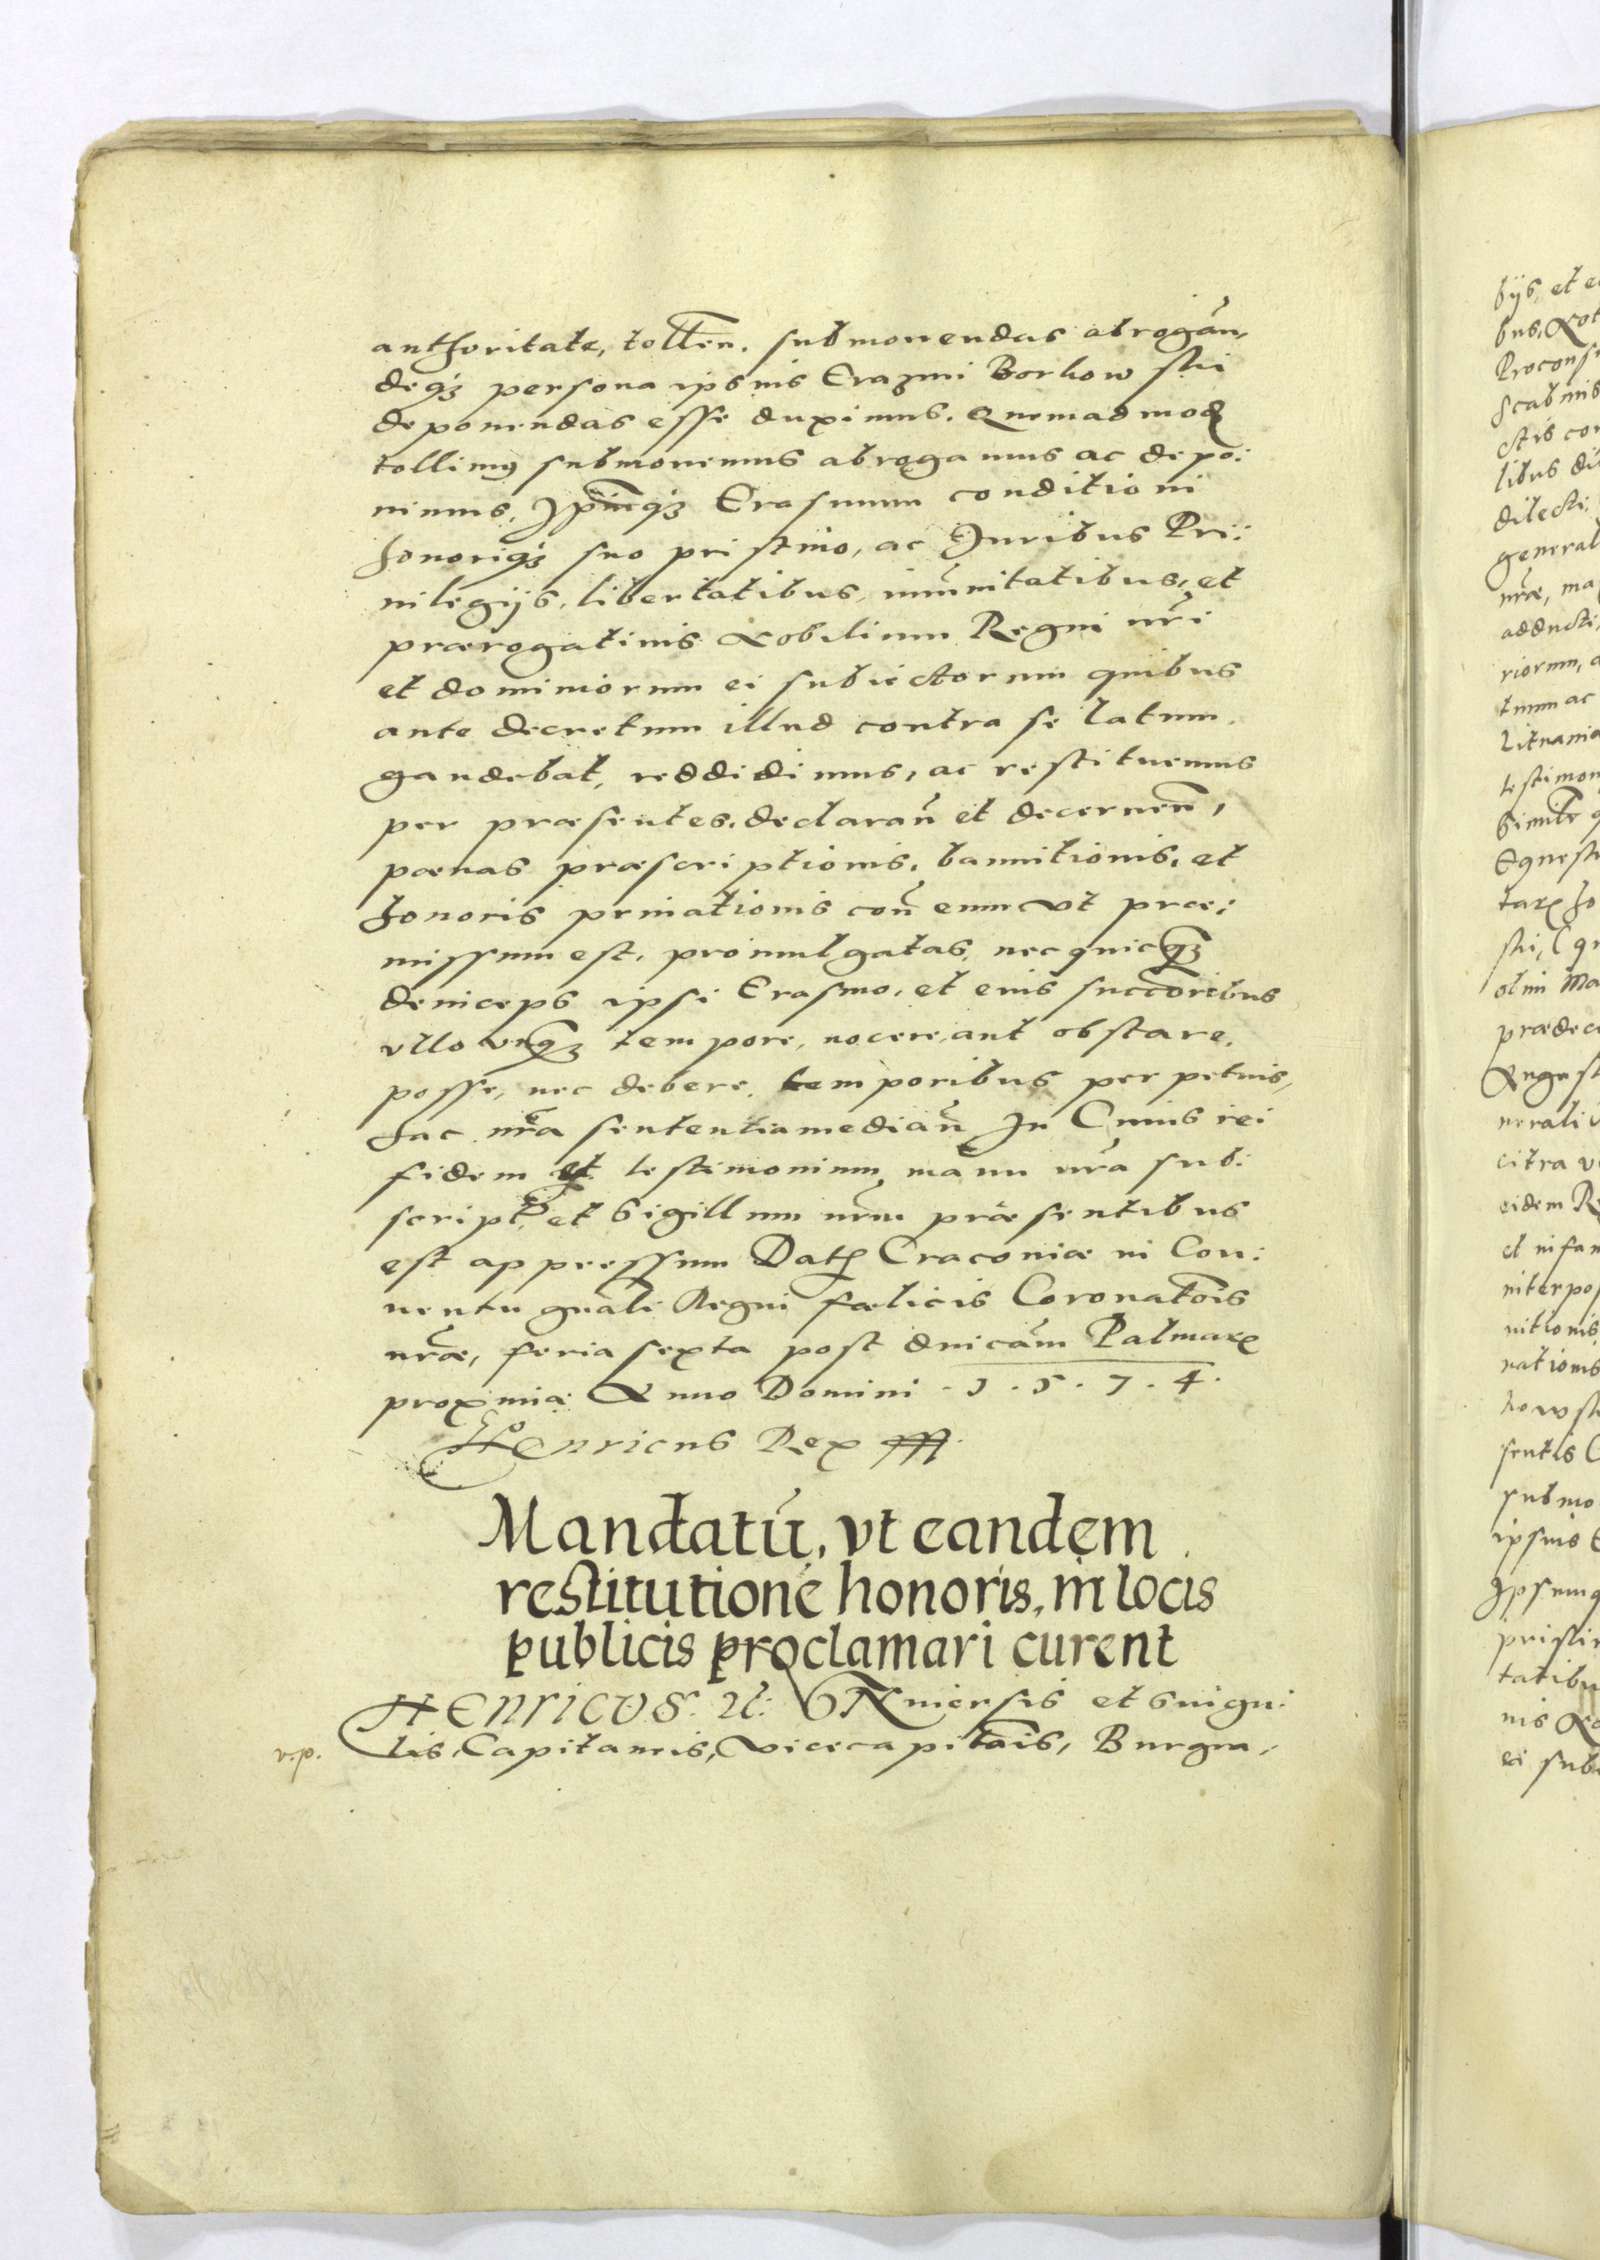 authoritate, tollen̄. submouendas abrogān,
deq́ꝫ persona ipsius Erazmi Borkow ski
deponendas esse duximus. Quemadmodꝭ
tollimꝰ submouemus abrogamus ac depo:
nimus, Ip̄umqꝫ Erasmum conditioni
honoriq́ꝫ suo pristino, ac Iuribus Pri:
uilegijs, libertatibus, imūnitatibus, et
prærogatiuis Nobilium Regni nr̄i
et dominiorum ei subiectorum quibus
ante decretum illud contra se latum
gaudebat, reddidimus, ac restituemus
per præsentes, declaran̄ et decernen̄,
pœnas præscriptionis, bannitionis, et
honoris priuationis con̄ eum vt præ:
missum est, promulgatas, nec quicqꝫ
deinceps ipsi Erasmo, et eius succoribus
vllo vnqꝫ tempore, nocere, aut obstare,
posse, nec debere. temporibus perpetuis,
hac nr̄a sententia median̄ In Cuius rei
fidem et testimonium manu nr̄a sub:
script. et Sigillum nr̄um præsentibus
est appressum Datꝭ Cracouiæ in Con:
uentu gn̄ali Regni fœlicis Coronatōis
nr̄æ, feria sexta post dnicam̄ Palmarꝭ
proximia Anno Domini . 1 . 5 . 7 . 4 .
Henricus Rex
Mandatū, vt eandem
restitutionē honoris, in locis
publicis proclamari curent
HENRICVS. Rꝭ: VNiuersis et Singu:
v.p. lis, Capitaneis, Vicecapitāis, Burgra:
bijs, et e
bus, Not
Proconsu
Scabinis
ctis co
libus di
dilecti:
general
nr̄æ, ma
adducti,
riorum, a
tuum ac
Lituania
testimon
Simile q
Equest
tarꝭ ho
ski, Equ
olim Ma
prædece
August
nerali
citra v
eidem Re
et infan
interpos
nitionis
uationis
kow sk
sentis
submo
ipsius E
Ipsumq
pristin
tatibu
uis No
ei sub